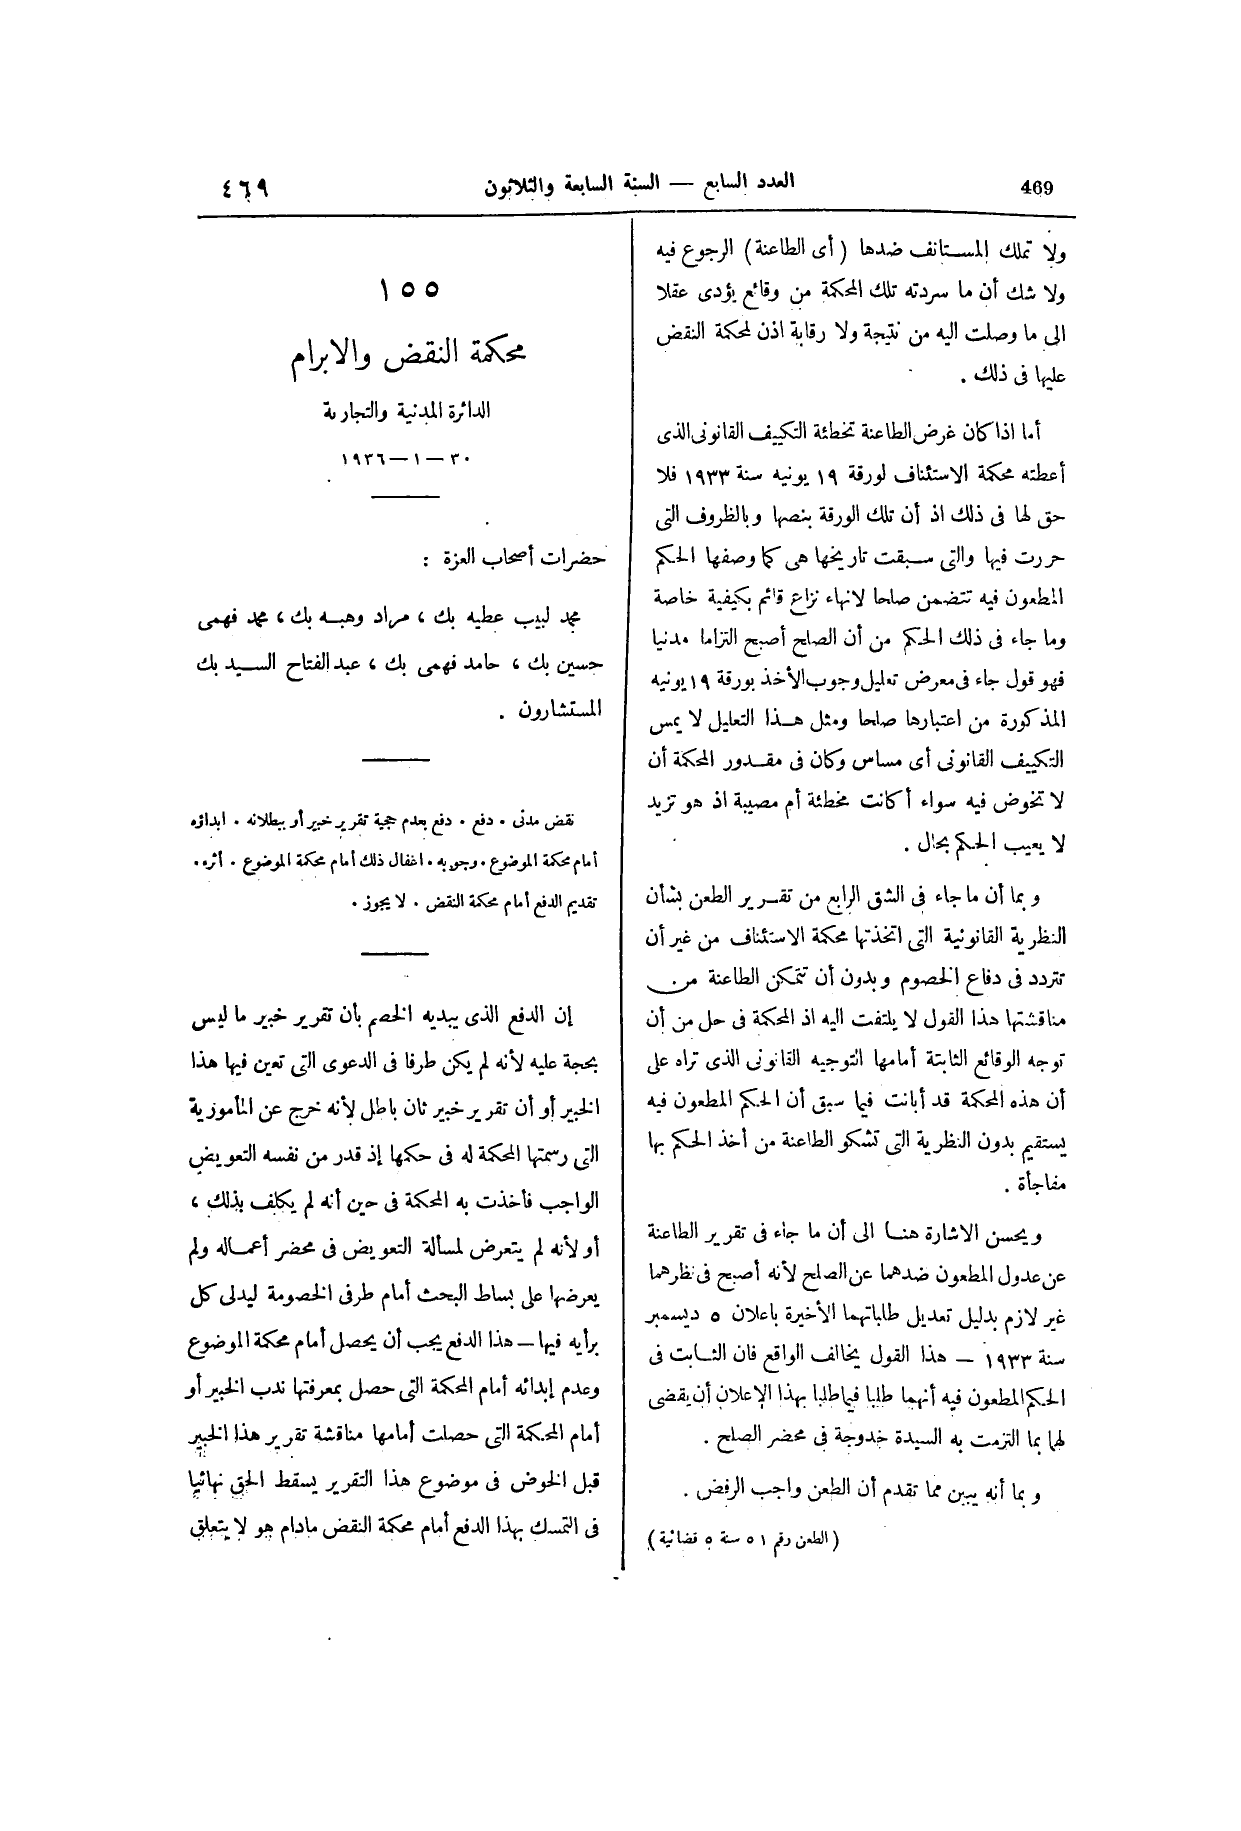 469
العدد السابع — السنة السابعة والثلاثون
٤٦٩
ولا تملك المستانف ضدها ( أى الطاعنة ) الرجوع فيه
ولا شك أن ما سردته تلك المحكمة من وقائع يؤدى عقلا
الى ما وصلت اليه من نتيجة ولا رقابة اذن لمحكمة النقض
عليها فى ذلك .
أما اذا كان غرض الطاعنة تخطئة التكييف القانونى الذى
أعطته محكمة الاستئناف لورقة ١٩ يونيه سنة ١٩٣٣ فلا
حق لها فى ذلك اذ أن تلك الورقة بنصها وبالظروف التى
حررت فيها والتى سبقت تاريخها هى كما وصفها الحكم
المطعون فيه تتضمن صلحا لانهاء نزاع قائم بكيفية خاصة
وما جاء فى ذلك الحكم من أن الصلح أصبح التزاما مدنيا
فهو قول جاء فى معرض تعليل وجوب الأخذ بورقة ١٩ يونيه
المذكورة من اعتبارها صلحا ومثل هذا التعليل لا يمس
التكييف القانونى أى مساس وكان فى مقدور المحكمة أن
لا تخوض فيه سواء أكانت مخطئة أم مصيبة اذ هو تزيد
لا يعيب الحكم بحال .
وبما أن ما جاء فى الشق الرابع من تقرير الطعن بشأن
النظرية القانونية التى اتخذتها محكمة الاستئناف من غير أن
تتردد فى دفاع الخصوم وبدون أن تتمكن الطاعنة من
مناقشتها هذا القول لا يلتفت اليه اذ المحكمة فى حل من أن
توجه الوقائع الثابتة أمامها التوجيه القانونى الذى تراه على
أن هذه المحكمة قد أبانت فيما سبق أن الحكم المطعون فيه
يستقيم بدون النظرية التى تشكو الطاعنة من أخذ الحكم بها
مفاجأة .
ويحسن الاشارة هنا الى أن ما جاء فى تقرير الطاعنة
عن عدول المطعون ضدهما عن الصلح لأنه أصبح فى نظرهما
غير لازم بدليل تعديل طلباتهما الأخيرة باعلان ٥ ديسمبر
سنة ١٩٣٣ — هذا القول يخالف الواقع فان الثابت فى
الحكم المطعون فيه أنهما طلبا فيما طلبا بهذا الإعلان أن يقضى
لهما بما التزمت به السيدة خدوجة فى محضر الصلح .
وبما أنه يبين مما تقدم أن الطعن واجب الرفض .
( الطعن رقم ٥١ سنة ٥ قضائية )
١٥٥
محكمة النقض والابرام
الدائرة المدنية والتجارية
٣٠ — ١ — ١٩٣٦
حضرات أصحاب العزة :
محمد لبيب عطيه بك ، مراد وهبه بك ، محمد فهمى
حسين بك ، حامد فهمى بك ، عبد الفتاح السيد بك
المستشارون .
نقض مدنى . دفع . دفع بعدم حجية تقرير خبير أو ببطلانه . ابداؤه
أمام محكمة الموضوع . وجوبه . اغفال ذلك أمام محكمة الموضوع . أثره .
تقديم الدفع أمام محكمة النقض . لا يجوز .
إن الدفع الذى يبديه الخصم بأن تقرير خبير ما ليس
بحجة عليه لأنه لم يكن طرفا فى الدعوى التى تعين فيها هذا
الخبير أو أن تقرير خبير ثان باطل لأنه خرج عن المأمورية
التى رسمتها المحكمة له فى حكمها إذ قدر من نفسه التعويض
الواجب فأخذت به المحكمة فى حين أنه لم يكلف بذلك ،
أو لأنه لم يتعرض لمسألة التعويض فى محضر أعماله ولم
يعرضها على بساط البحث أمام طرفى الخصومة ليدلى كل
برأيه فيها — هذا الدفع يجب أن يحصل أمام محكمة الموضوع
وعدم إبدائه أمام المحكمة التى حصل بمعرفتها ندب الخبير أو
أمام المحكمة التى حصلت أمامها مناقشة تقرير هذا الخبير
قبل الخوض فى موضوع هذا التقرير يسقط الحق نهائيا
فى التمسك بهذا الدفع أمام محكمة النقض مادام هو لا يتعلق